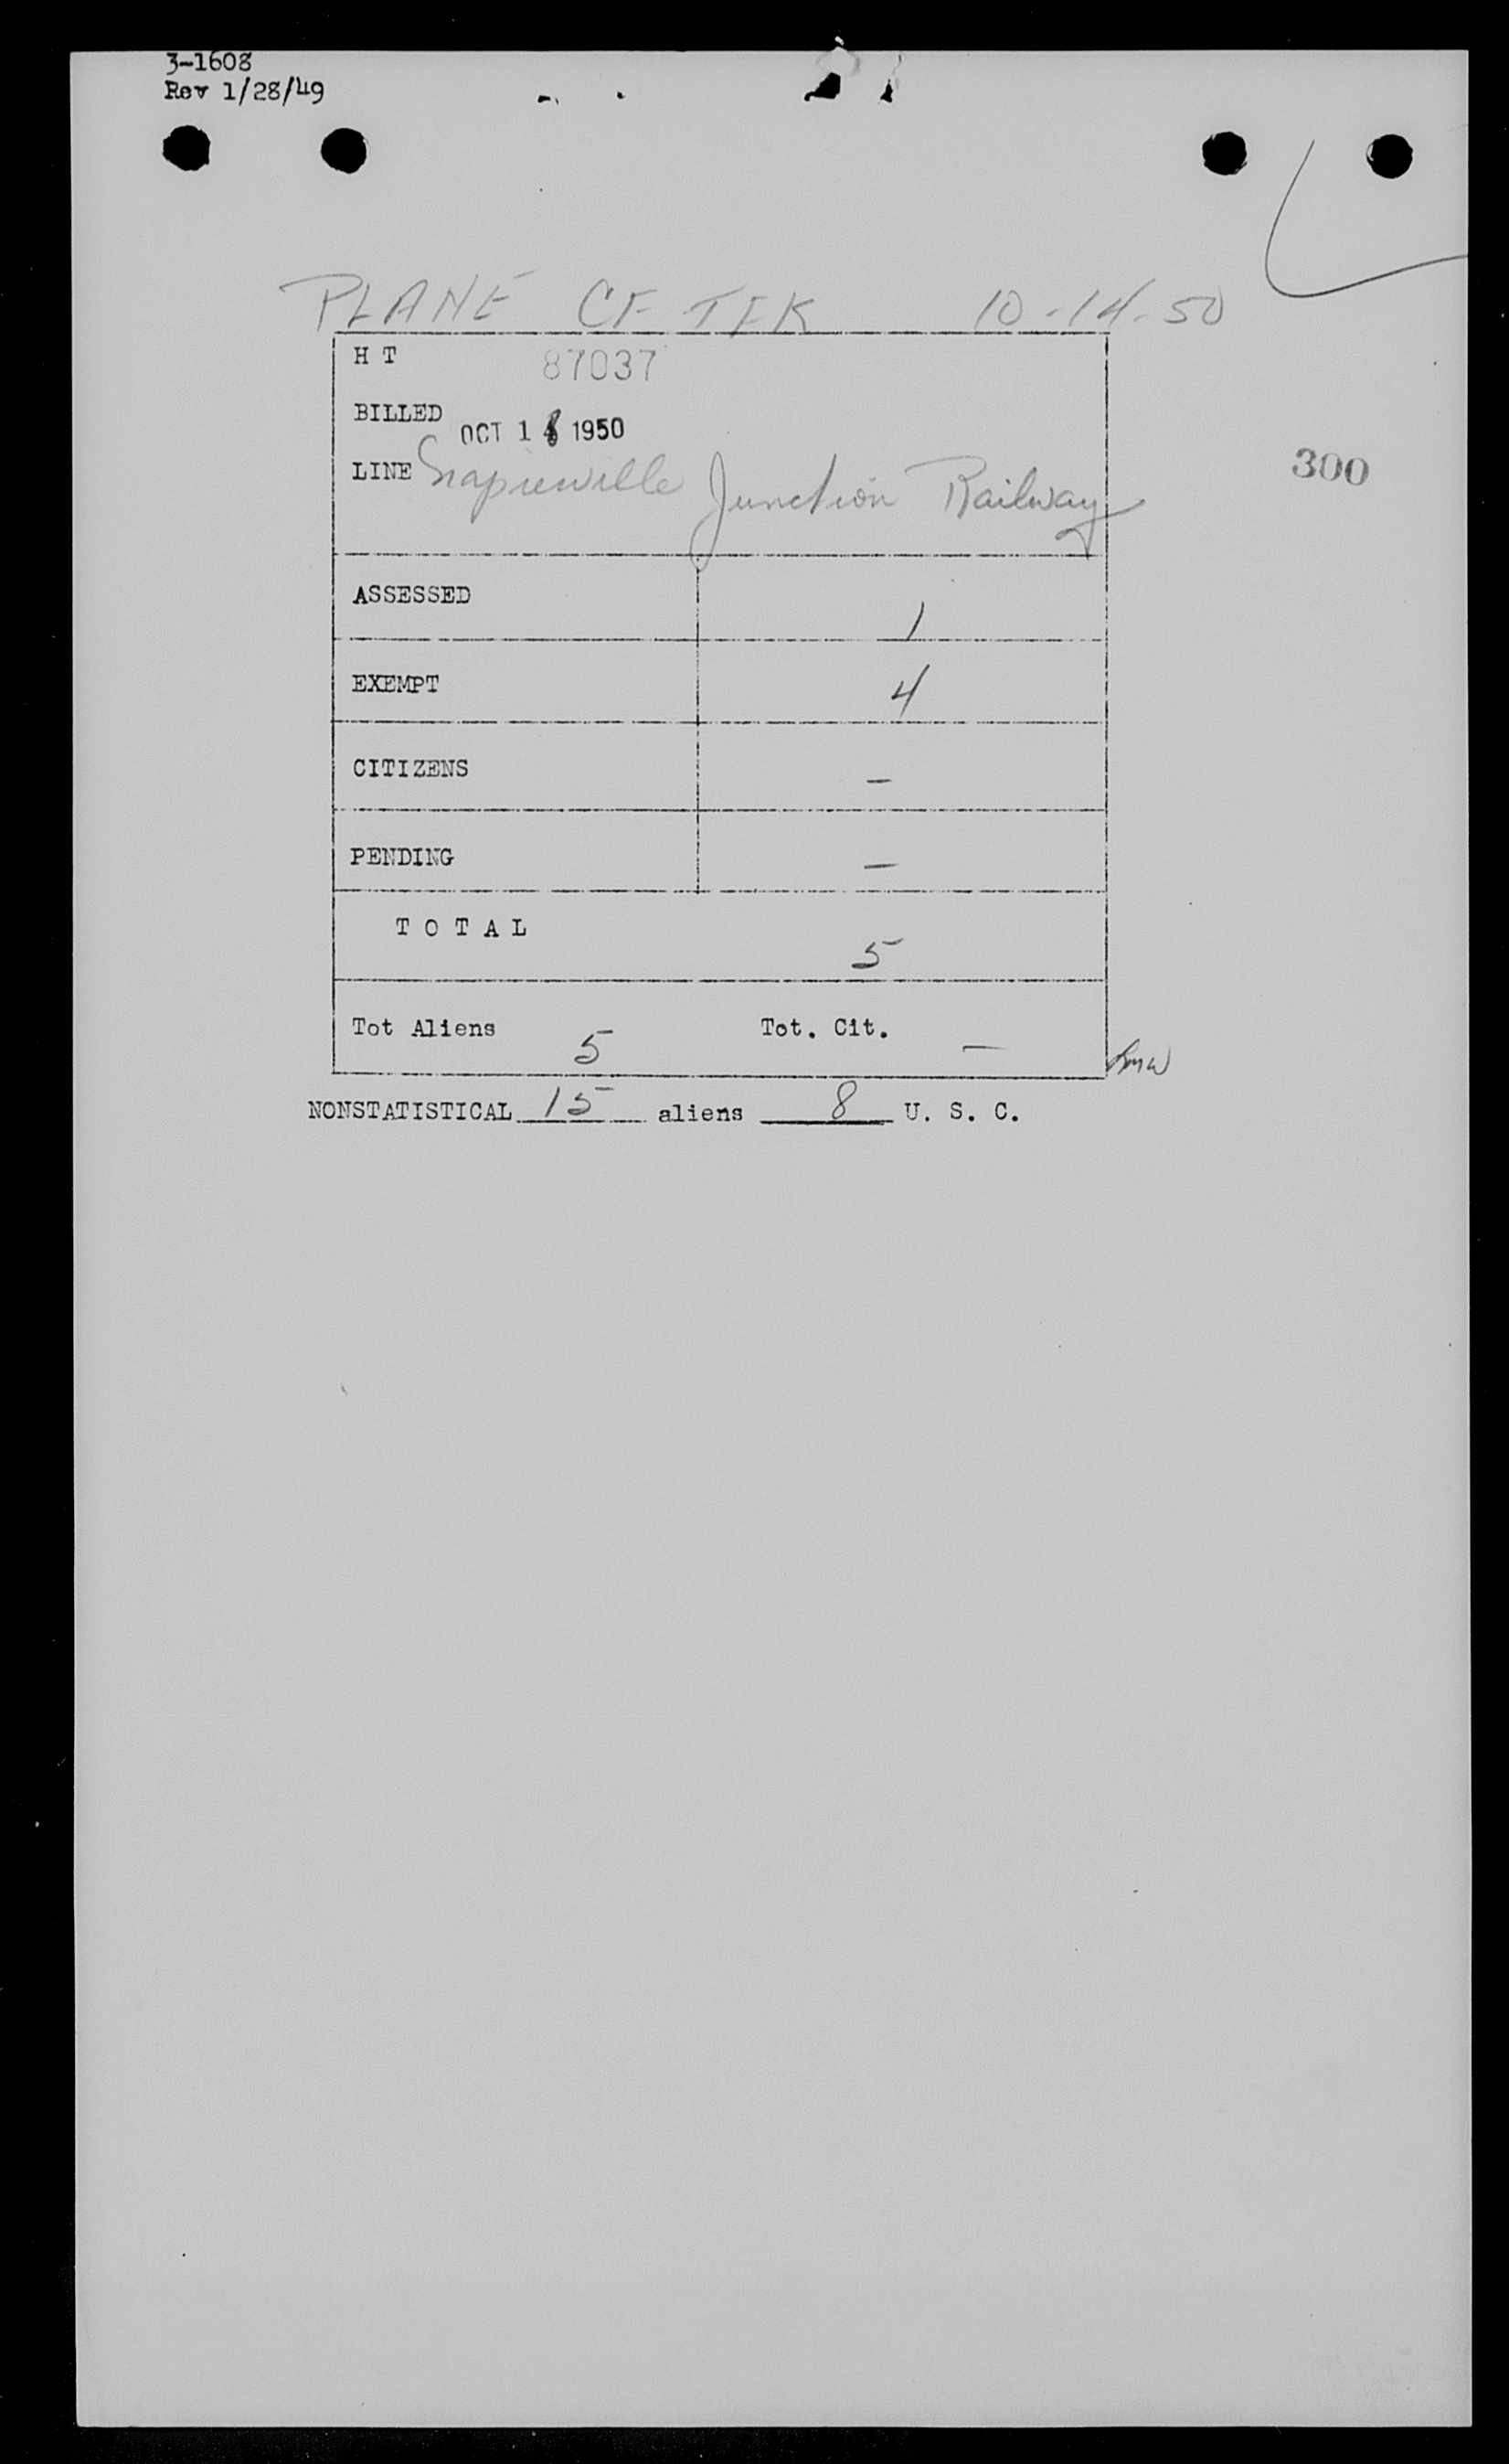 3-1608
Rev 1/28/49
PLANE CF-TFK 10-14-50
H T 87037
BILLED OCT 18 1950
LINE Napierville Junction Railway
300
ASSESSED 1
EXEMPT 4
CITIZENS –
PENDING –
T O T A L 5
Tot Aliens 5 Tot. Cit. –
NONSTATISTICAL 15 aliens 8 U. S. C.